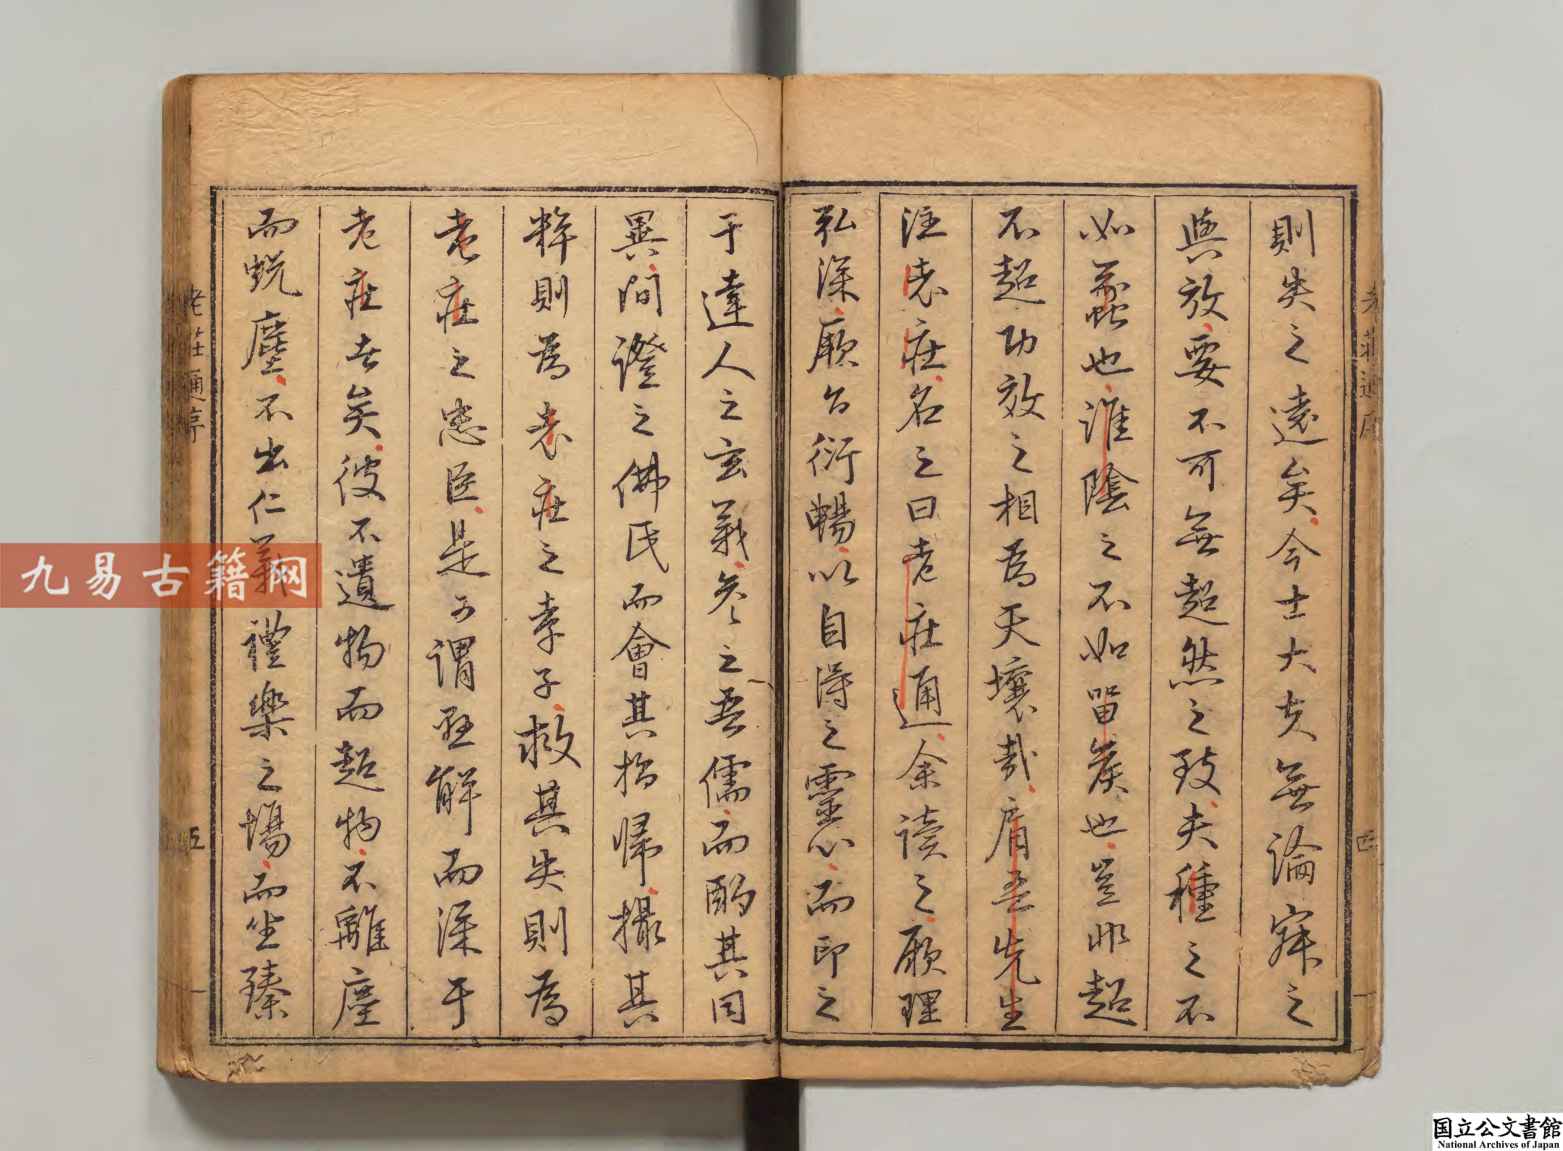 則失之遠矣今士大夫無論寐之
與放要不可無超然之致夫種之不
如蠡也淮陰之不如留矦也豈非超
不超功效之相為天壤哉肩吾先生
注老莊名之曰老莊通余讀之厥理
弘深厥旨衍暢以自得之靈心而印之
于達人之玄義叅之吾儒而酌其同
異間證之佛氏而會其指歸撮其
粹則為老莊之孝子救其失則為
老莊之忠臣是可謂頤解而深于
老莊者矣彼不遺物而超物不離塵
而蛻塵不出仁義禮樂之場而坐臻
老莊通序
四
老莊通序
五
九易古籍网
国立公文書館
National Archives of Japan